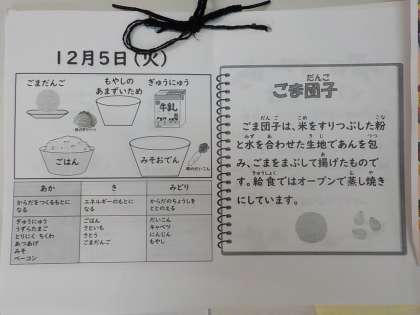 12月5日(火)
ごまだんご
もやしの
あまずいため
ぎゅうにゅう
牛乳
ごはん
みそおでん
あか
き
みどり
からだをつくるもとに
なる
エネルギーのもとに
なる
からだのちょうしを
ととのえる
ぎゅうにゅう
うずらたまご
とりにく ちくわ
あつあげ
みそ
ベーコン
ごはん
さといも
さとう
ごまだんご
だいこん
キャベツ
にんじん
もやし
だんご
ごま団子
ごま団子は、米をすりつぶした粉
と水を合わせた生地であんを包
み、ごまをまぶして揚げたもので
す。給食ではオーブンで蒸し焼き
にしています。